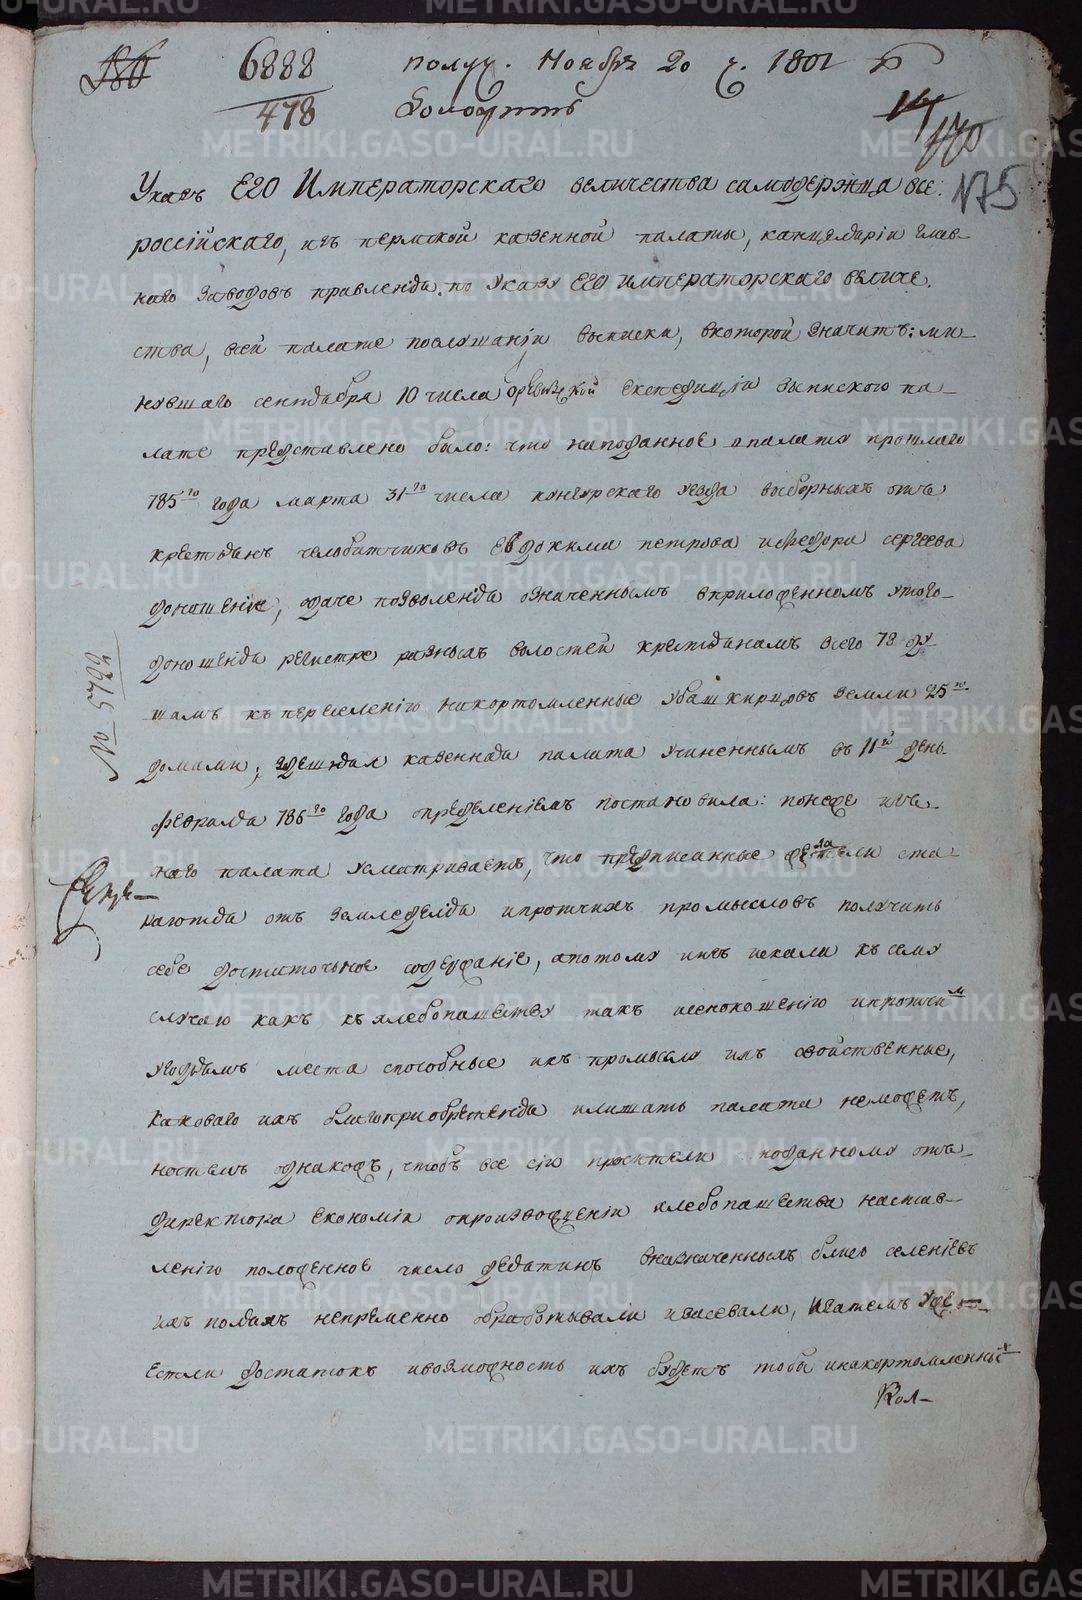 6888 получ. Ноября 20 ч. 1801
478 Доложить
175
Указъ Его Императорскаго величества самодержца все:
россійскаго, изъ пермской казенной палаты, канцеляріи глав-
наго заводовъ правленія. по Указу Его императорскаго величе,
ства, всей палате послушаніи выписки, вкоторой значитъ: ми-
нувшаго сентября 10 числа экспедиціи запискою па-
лате представлено было: что наподанное впалату прошлаго
785го года марта 31го числа кунгурскаго уезда выборныхъ отъ
крестьянъ челобитчиковъ Евдокима петрова ифедора сергеева
доношеніе, одаче позволенія означеннымъ вприложенномъ утого-
доношенія регистре разныхъ волостей крестьянамъ всего 78 ду-
шамъ къ переселенію накортомленные убашкирцовъ земли 25ю
домами, здешняя казенная палата учиненнымъ въ 11й день
февраля 786го года определеніемъ постановила: понеже изъ-
наго палата усматриваетъ, что предписанные ста-
раются отъ земледелія ипротчихъ промысловъ получить
себе достаточное содержаніе, апотому ихъ искали къ сему
случаю какъ къ хлебопашеству такъ исенокошенію ипротчим
угодьямъ места способные икъ промыслу ихъ свойственные,
каковаго ихъ благоприобретенія илишать палата неможетъ,
ностемъ однакожъ, чтобъ все сіи просители поданному отъ-
директора економіи опроизвожденіи хлебопашества настав-
ленію положенное число десятинъ вназначенныхъ близъ селеніевъ
ихъ поляхъ непременно обработывали изасевали, изатемъ уже
естли достатокъ ивозможность ихъ будетъ тобы инакортомленные
Кол-
No 5722